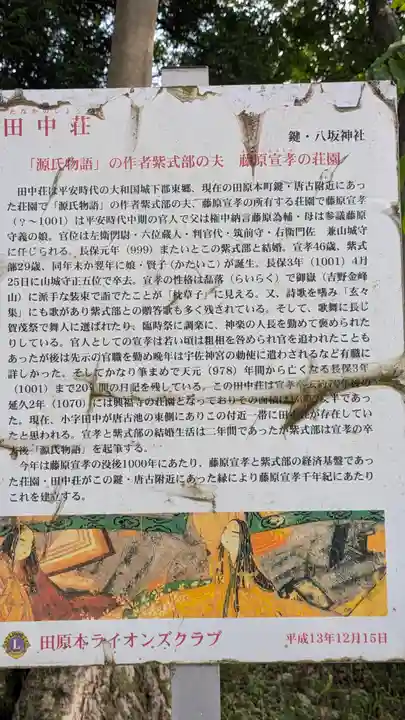 たなかのしょう
田中荘
鍵・八坂神社
「源氏物語」の作者紫式部の夫　藤原宣孝の荘園
田中荘は平安時代の大和国城下郡東郷、現在の田原本町鍵・唐古附近にあっ
た荘園で「源氏物語」の作者紫式部の夫、藤原宣孝の所有する荘園で藤原宣孝
（？～1001）は平安時代中期の官人で父は権中納言藤原為輔・母は参議藤原
守義の娘。官位は左衛門尉・六位蔵人・判官代・筑前守・右衛門佐　兼山城守
に任じられる。長保元年（999）またいとこの紫式部と結婚。宣孝46歳、紫式
部29歳、同年末か翌年に娘・賢子（かたいこ）が誕生。長保3年（1001）4月
25日に山城守正五位で卒去。宣孝の性格は磊落（らいらく）で御嶽（吉野金峰
山）に派手な装束で詣でたことが「枕草子」に見える。又、詩歌を嗜み「玄々
集」にも歌があり紫式部との贈答歌も多く残されている。そして、歌舞に長じ
賀茂祭で舞人に選ばれたり、臨時祭に調楽に、神楽の人長を勤めて褒められた
りしている。官人としての宣孝は若い頃は粗相を咎められ官を追われたことも
あったが後は先示の官職を勤め晩年は宇佐神宮の勅使に遣わされるなど有職に
詳しかった。そしてかなり筆まめで天元（978）年間から亡くなる長保3年
（1001）まで20年間の日記を残している。この田中荘は宣孝 約70年後の
延久2年（1070）には興福寺の荘園となっておりその面積は 半であっ
た。現在、小字田中が唐古池の東側にありこの付近一帯に田中荘が存在してい
たと思われる。宣孝と紫式部の結婚生活は二年間であったが紫式部は宣孝の卒
去後「源氏物語」を起筆する。
今年は藤原宣孝の没後1000年にあたり、藤原宣孝と紫式部の経済基盤であっ
た荘園・田中荘がこの鍵・唐古附近にあった縁により藤原宣孝千年紀にあたり
これを建立する。
L
田原本ライオンズクラブ
平成13年12月15日